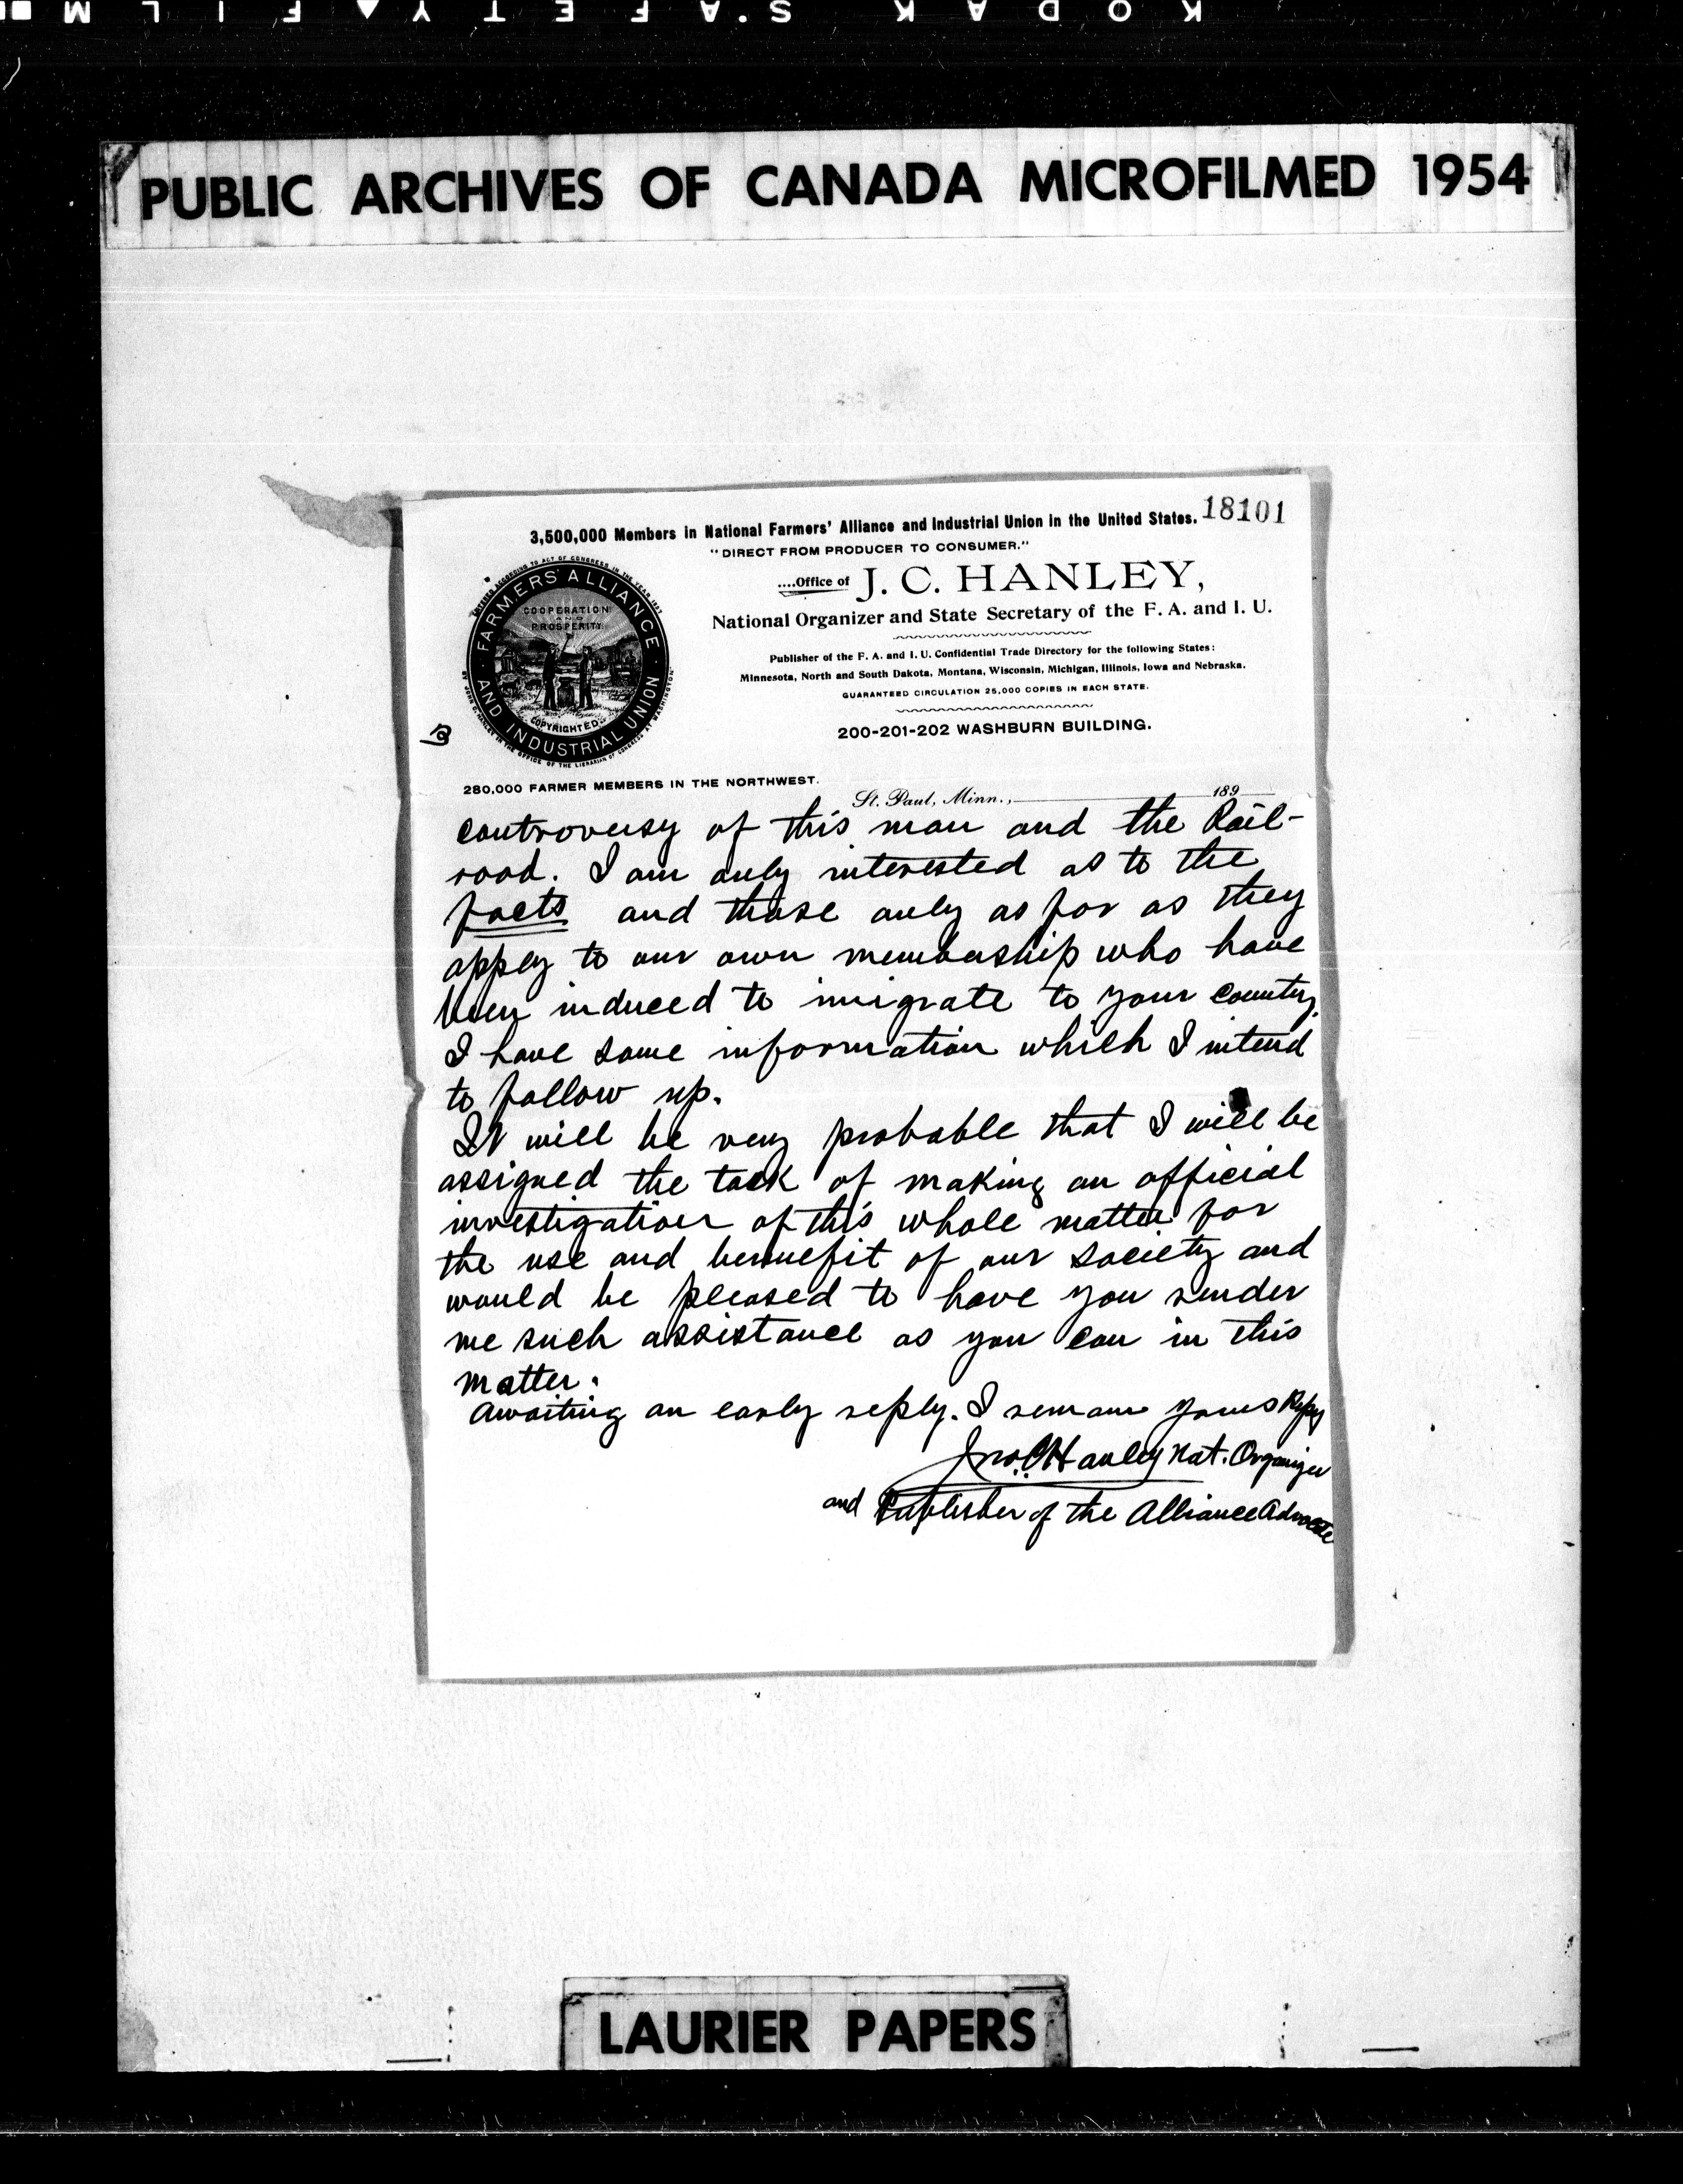 KODAK SAFETY FILM
PUBLIC ARCHIVES OF CANADA MICROFILMED 1954
18101
3,500,000 Members in National Farmers' Alliance and Industrial Union in the United States.
"DIRECT FROM PRODUCER TO CONSUMER."
....Office of J. C. HANLEY,
National Organizer and State Secretary of the F. A. and I. U.
Publisher of the F. A. and I. U. Confidential Trade Directory for the following States:
Minnesota, North and South Dakota, Montana, Wisconsin, Michigan, Illinois, Iowa and Nebraska.
GUARANTEED CIRCULATION 25,000 COPIES IN EACH STATE.
200-201-202 WASHBURN BUILDING.
FARMERS' ALLIANCE AND INDUSTRIAL UNION
COOPERATION
AND
PROSPERITY
COPYRIGHTED
280,000 FARMER MEMBERS IN THE NORTHWEST.
St. Paul, Minn., 189
controversy of this man and the Rail-
road. I am only interested as to the
facts and those only as far as they
apply to our own membership who have
been induced to imigrate to your country.
I have some information which I intend
to follow up.
It will be very probable that I will be
assigned the task of making an official
investigation of this whole matter for
the use and bennefit of our society and
would be pleased to have you render
me such assistance as you can in this
matter.
Awaiting an early reply. I remain yours Rspy
Jno. C. Hanley Nat. Organizer
and Publisher of the Alliance Advocate
LAURIER PAPERS